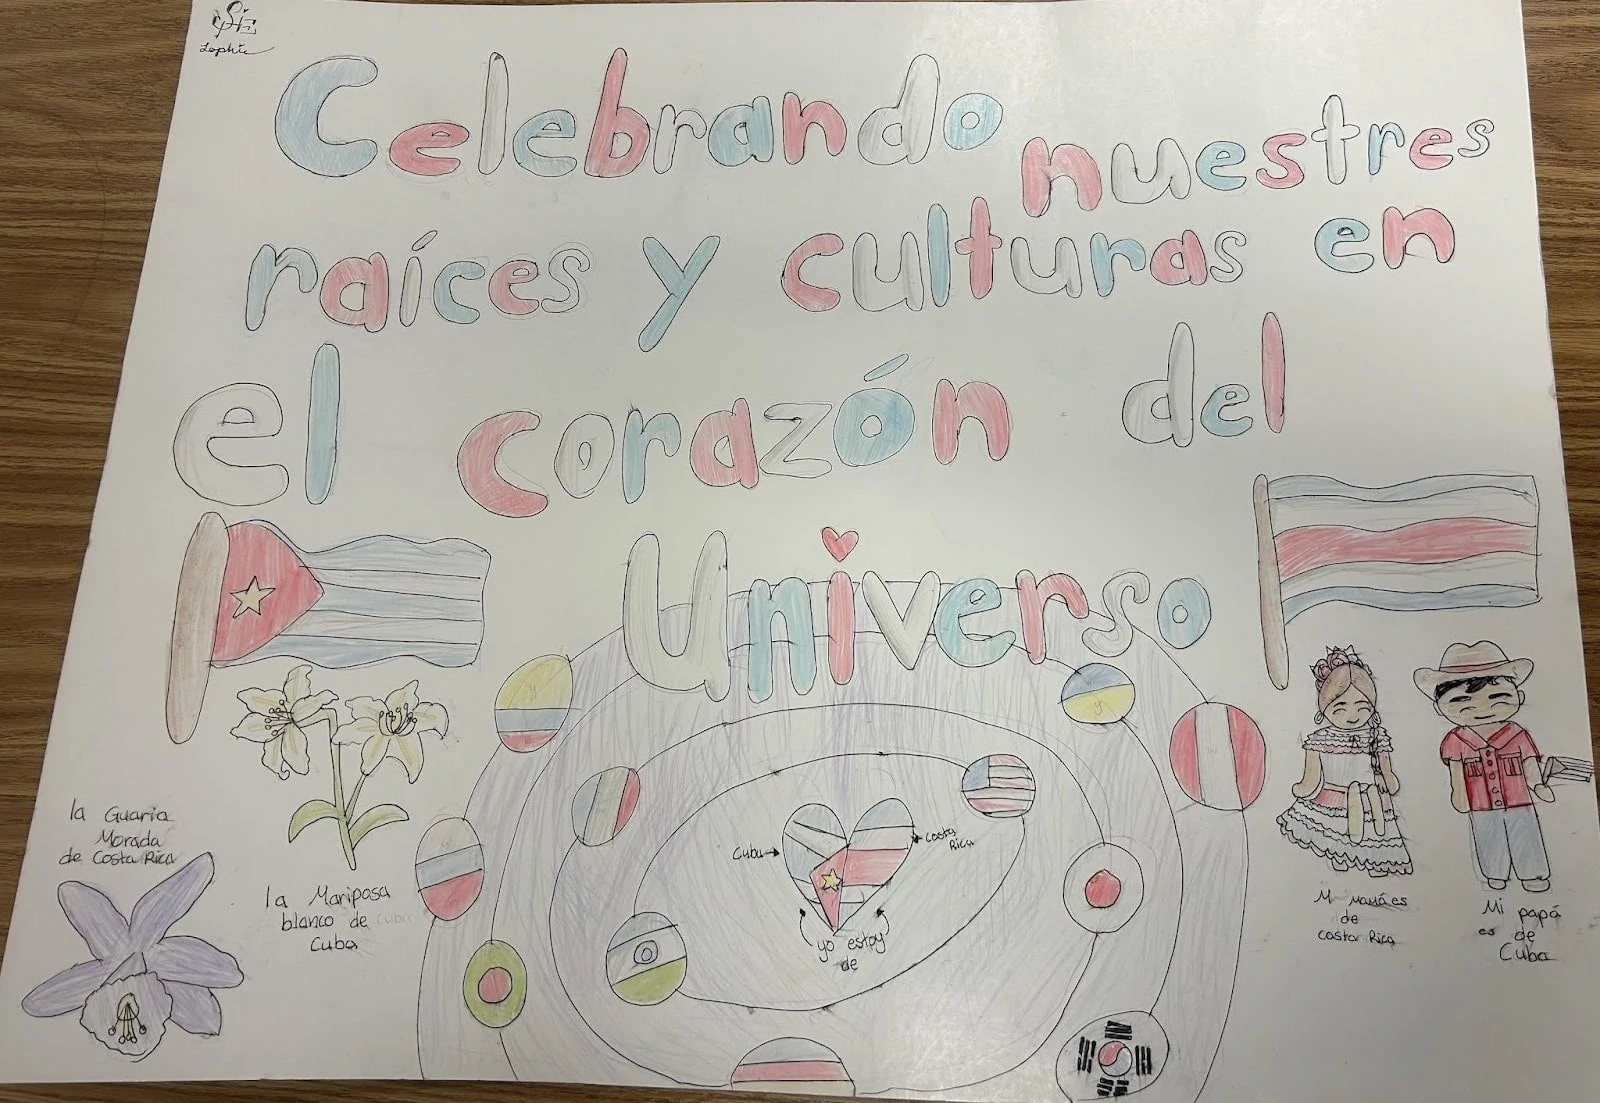 Sophie
Celebrando nuestres
raíces y culturas en
el corazón del
Universo
la Guaria
Morada
de Costa Rica
la Mariposa
blanco de Cuba
Cuba
Cuba
Costa
Rica
yo estoy
de
Mi mamá es
de
costa Rica
Mi papá
es de
Cuba
y
y